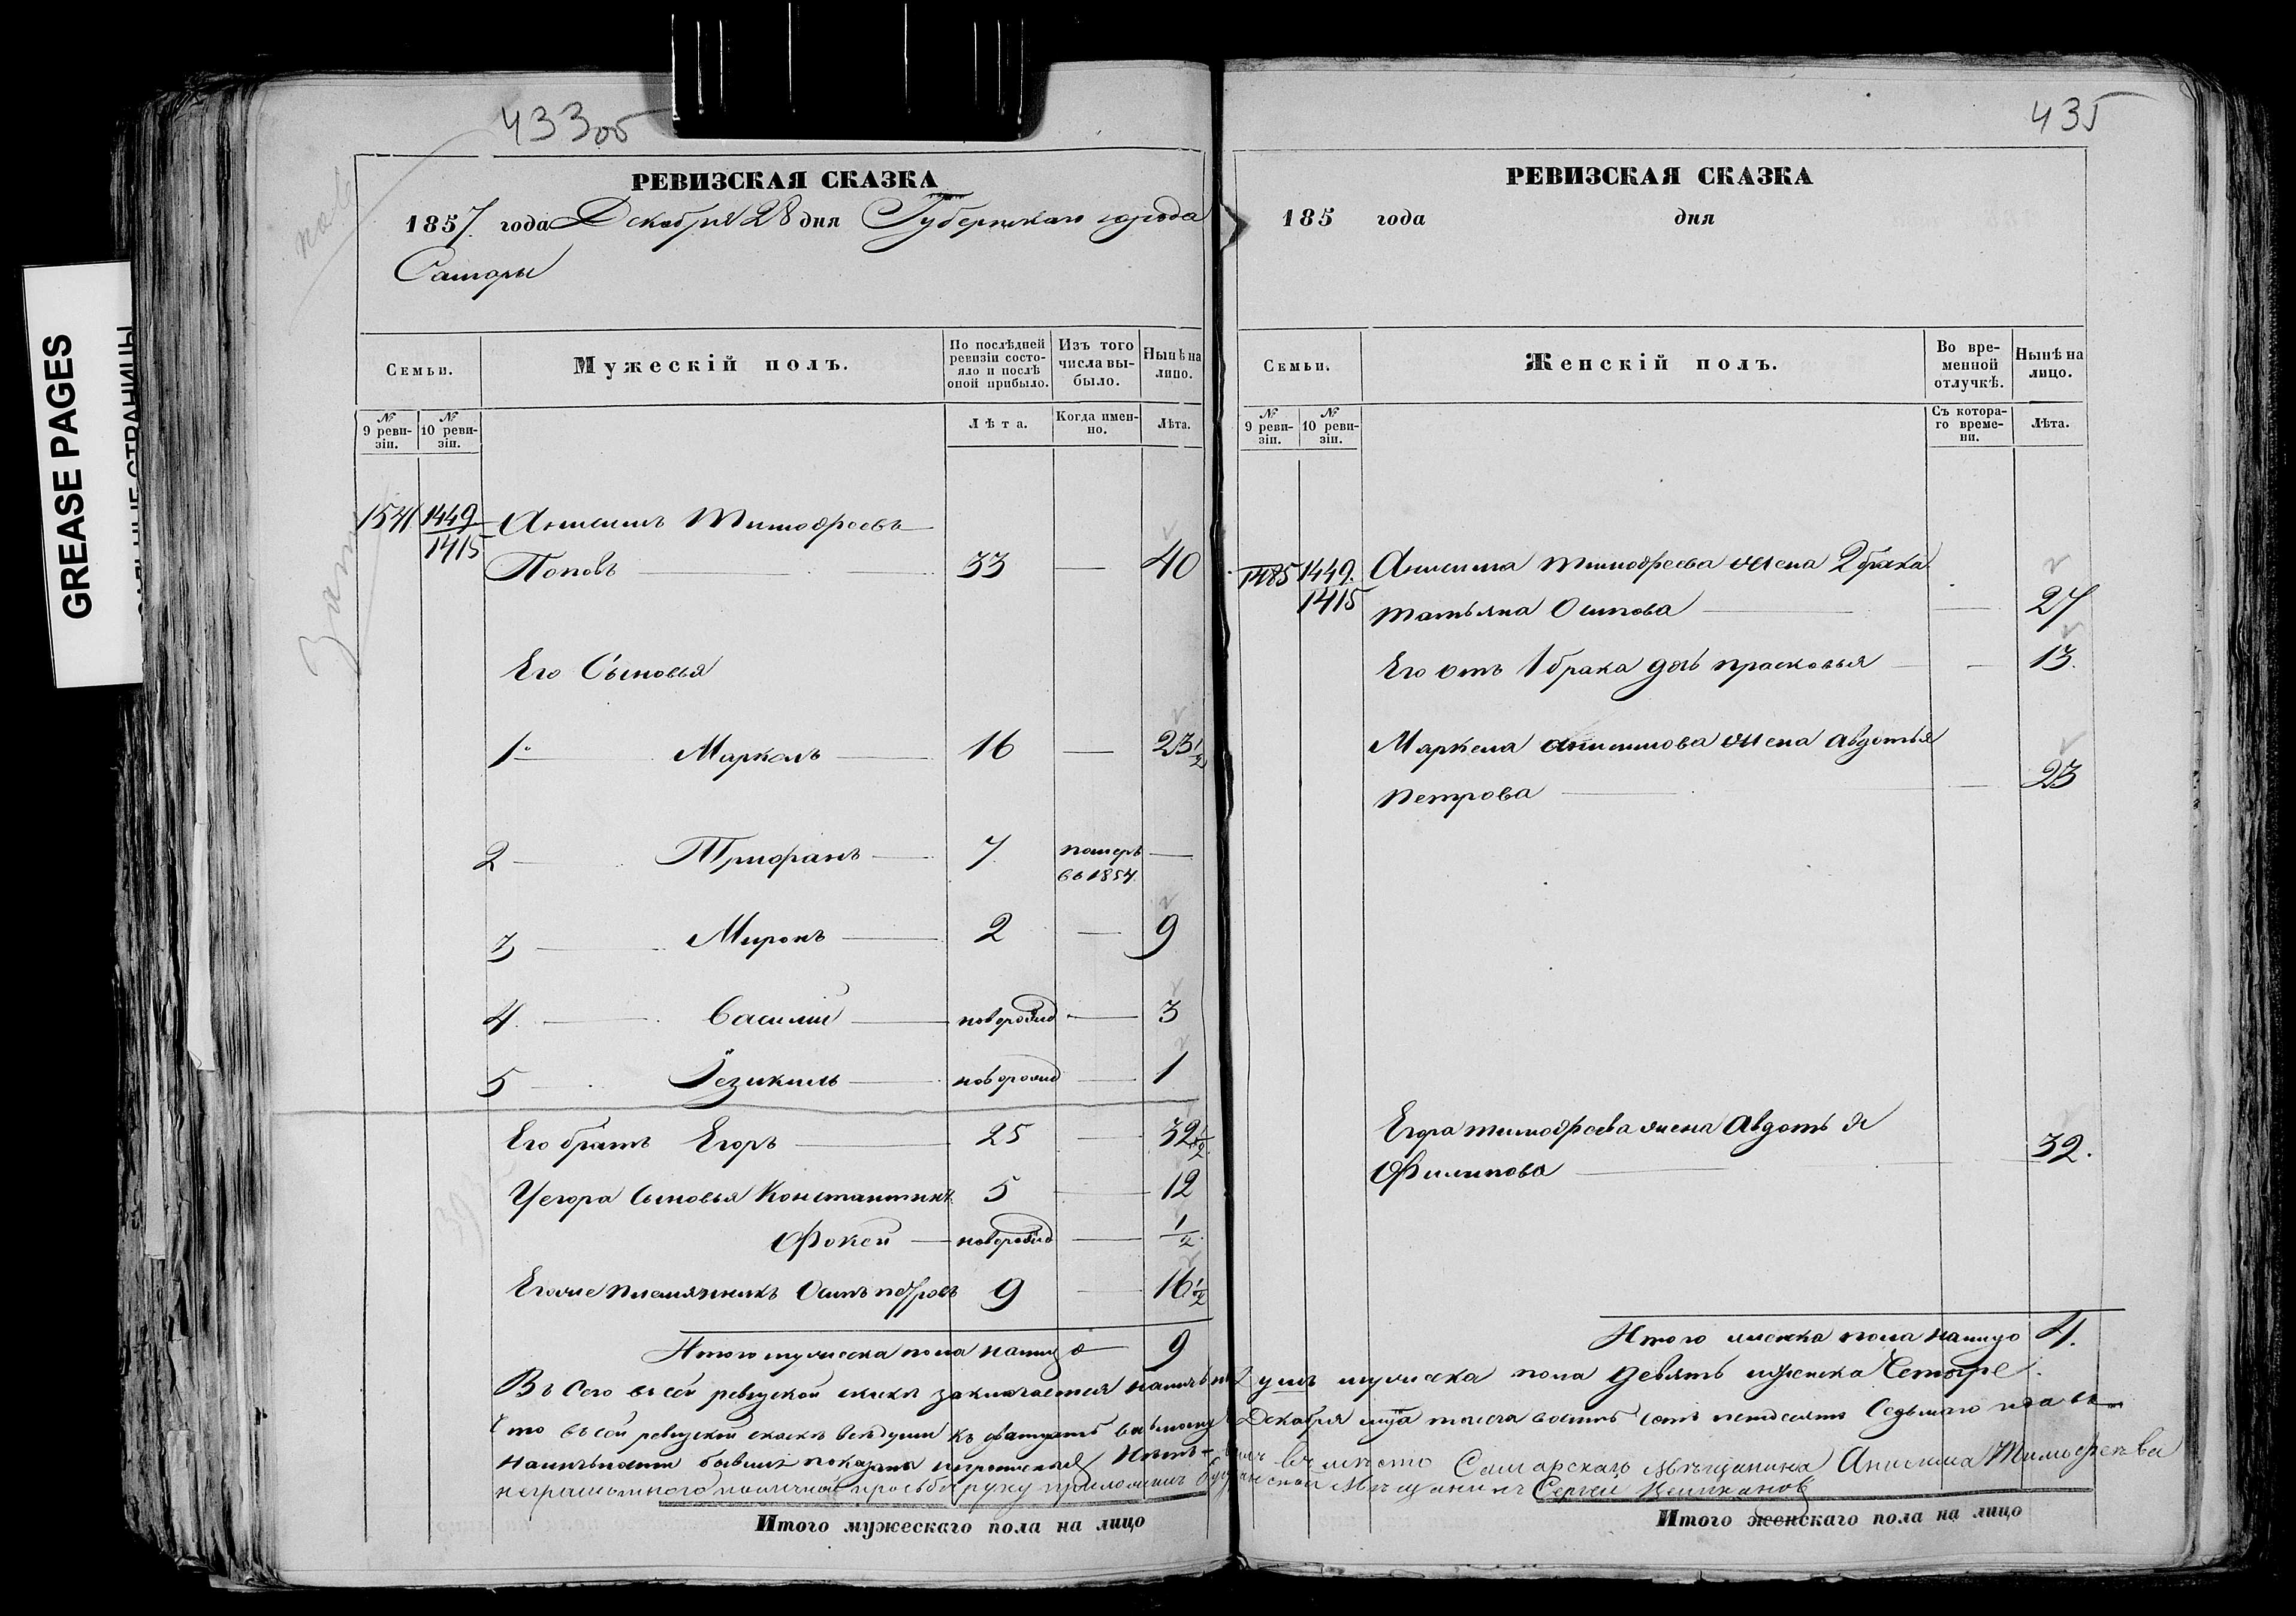 433об
РЕВИЗСКАЯ СКАЗКА
1857 года Декабря 28 дня Губернскаго города
Самары
Семьи.
Мужескій полъ.
По послѣдней ревизіи состояло и послѣ оной прибыло.
Изъ того числа выбыло.
Нынѣ на лицо.
№ 9 ревизіи.
№ 10 ревизіи.
Лѣта.
Когда именно.
Лѣта.
1541 1449 Анисимъ Тимофеевъ
1415
Поповъ 33 — 40
Его Сыновья
1 Маркелъ 16 — 23 1/2
2 Трифанъ 7 померъ —
въ 1854
3 Миронъ 2 — 9
4 Василий новорожд — 3
5 Іезикиль новорожд — 1
Его братъ Егоръ 25 — 32 1/2
У Егора Сыновья Константинъ 5 — 12
Фокей новорожд — 1/2
Егоже племянникъ Осипъ петровъ 9 — 16 1/2
Итого мужеска пола налицо 9
Итого мужескаго пола на лицо
GREASE PAGES
435
РЕВИЗСКАЯ СКАЗКА
185 года дня
Семьи.
Женскій полъ.
Во временной отлучкѣ.
Нынѣ на лицо.
№ 9 ревизіи.
№ 10 ревизіи.
Съ котораго времени.
Лѣта.
1485 1449. Анисима тимофеева жена 2 брака
1415 татьяна Осипова — 27
Его отъ 1 брака дочь прасковья — 13.
Маркела анисимова жена авдотья
петрова — 23
Егора тимофеева жена авдотья
Филипова 32.
Итого женска пола налицо 4.
Всего въ сей ревизской скаскѣ заключается налицо душъ мужеска пола девять женска Четыре
Что въ сей ревизской скаскѣ все души къ двадцать восьмому Декабря мца тысяча восемь сотъ петдесятъ Седьмаго года въ
наличности бывшие показаны и прописныхъ нетъ въ томъ вместо Самарскаго мещанина Анисима Тимофеева
неграмотного по личной просьбе руку приложилъ мещанинъ Сергей
Итого женскаго пола на лицо